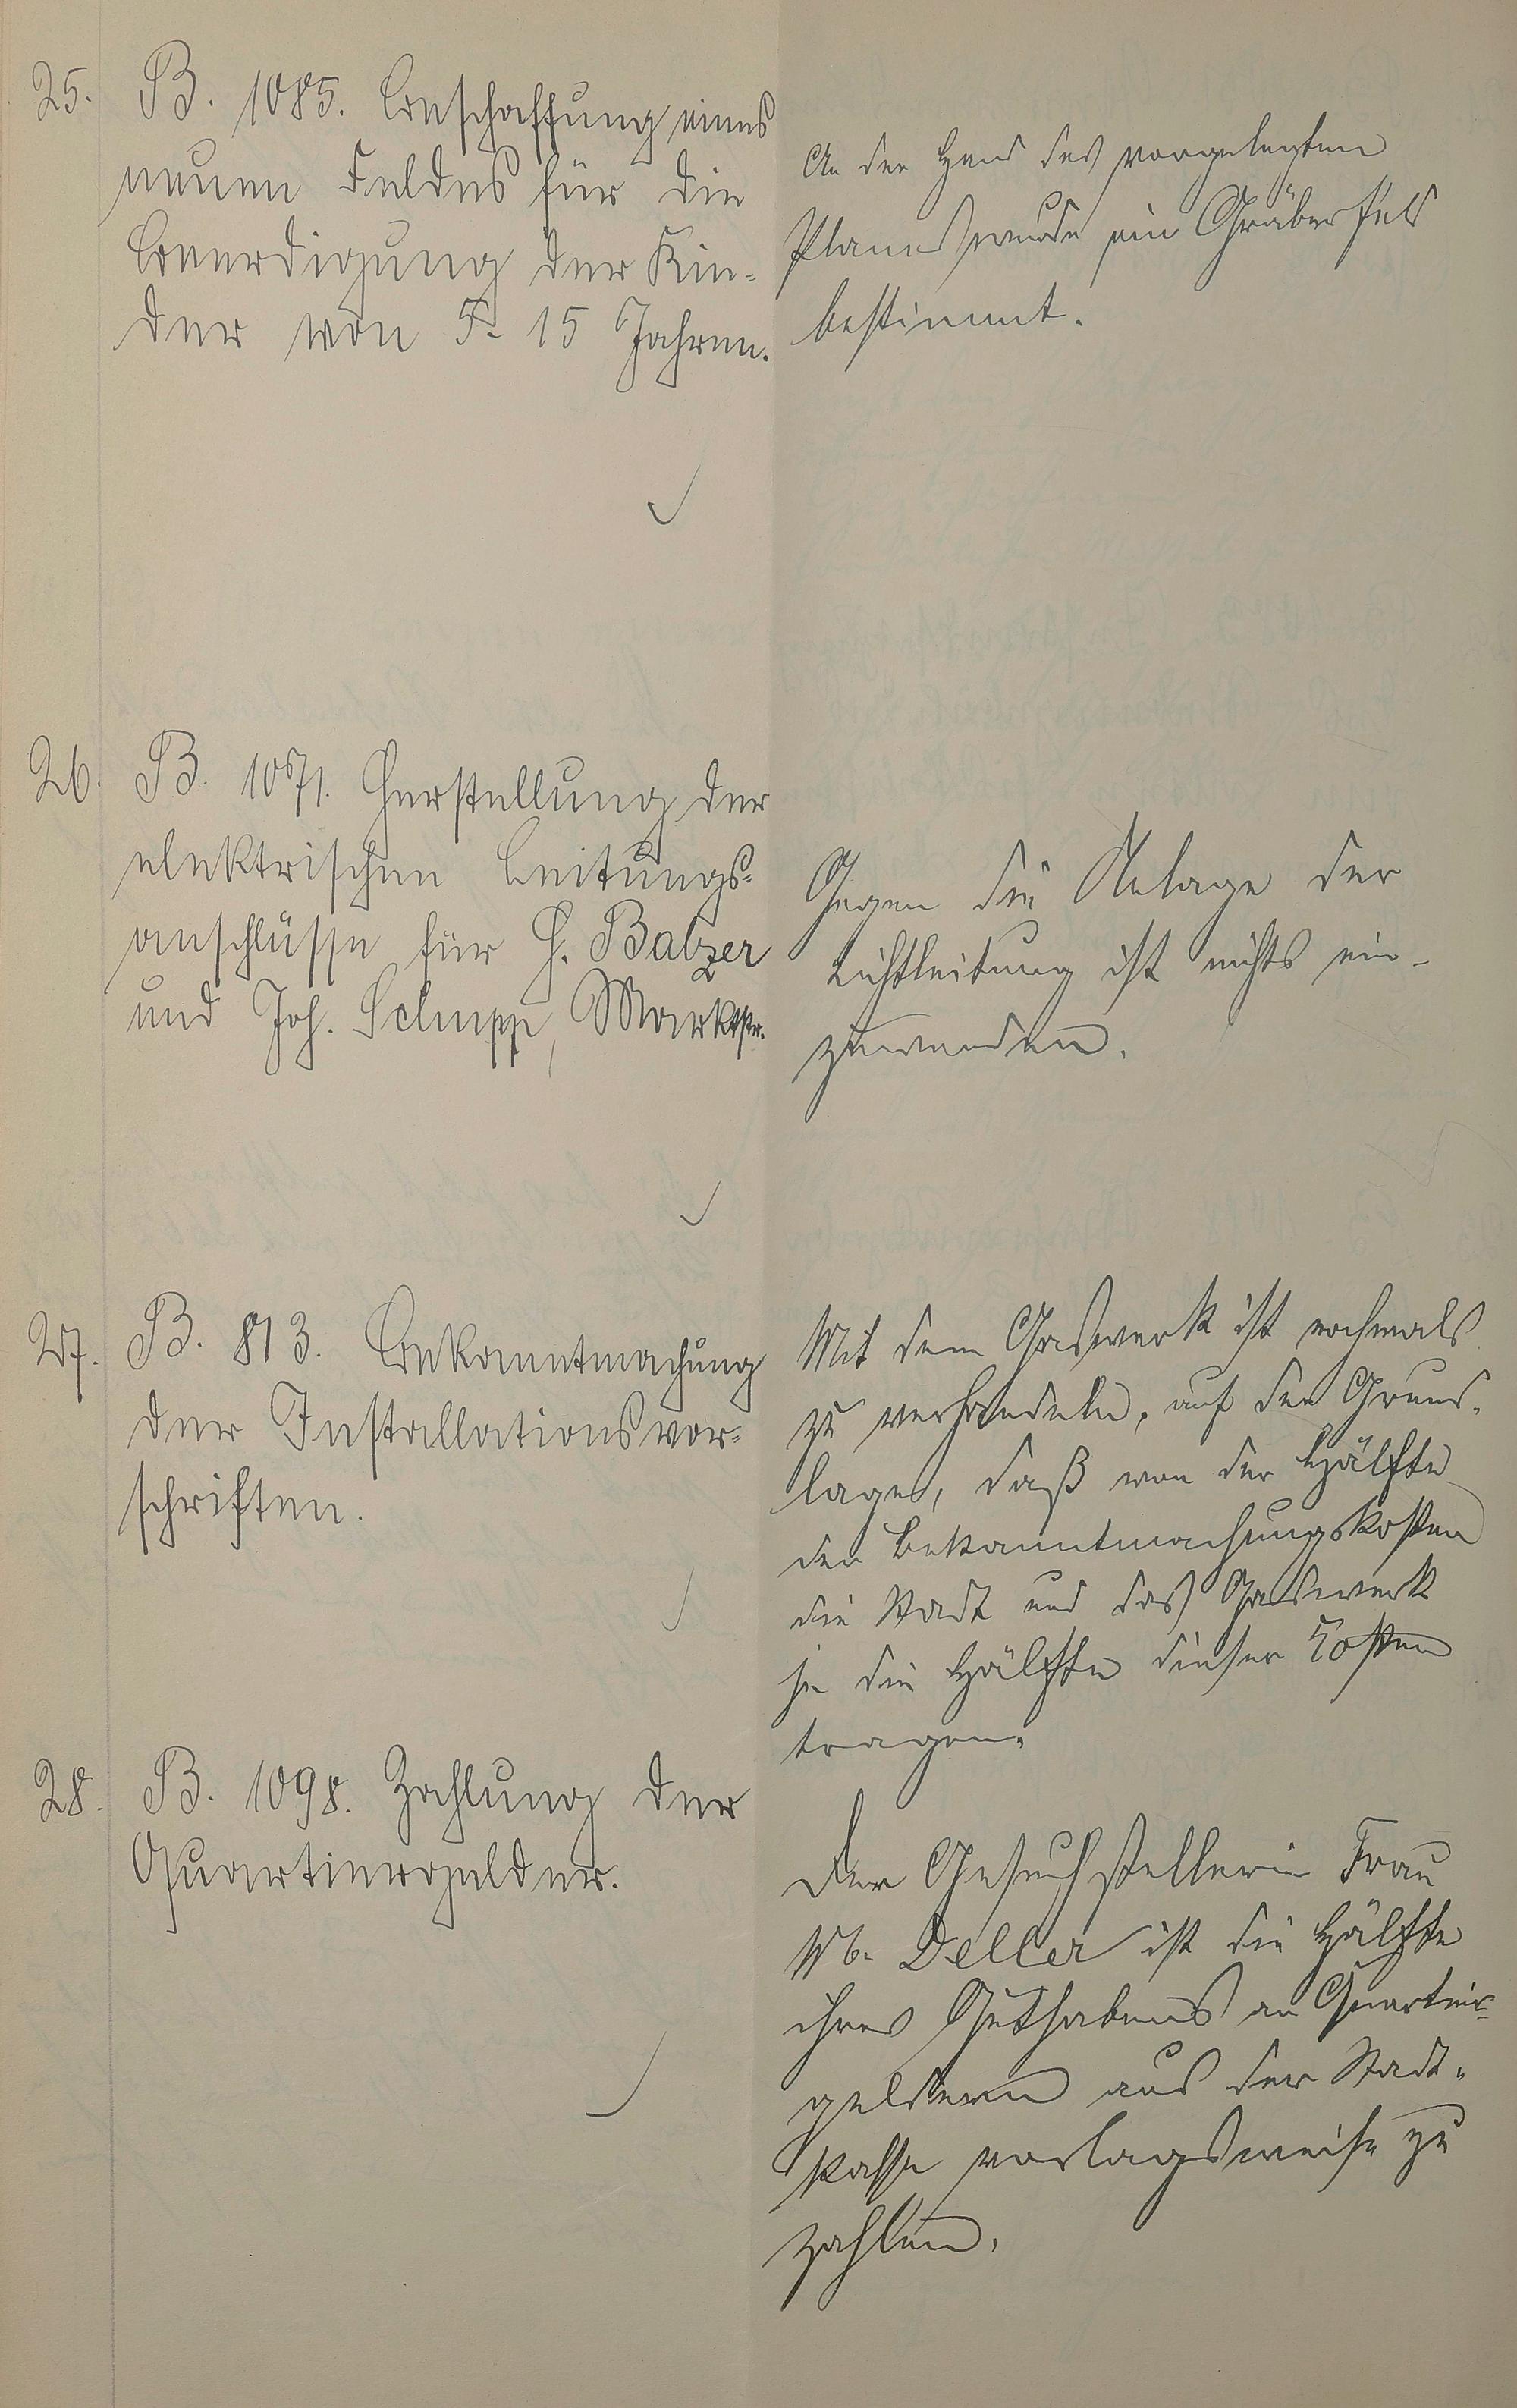 25. B. 1085. Beschaffung eines
neuen Feldes für die
Beerdigung der Kin-
der von 5-15 Jahren.
An der Hand des vorgelegten
Planes wurde ein Gräberfeld
bestimmt.
26. B. 1071. Herstellung der
elektrischen Leitungs-
anschlüsse für H. Balzer
und Joh. Schupp, Marktstr.
Gegen die Anlage der
Lichtleitung ist nichts ein-
zuwenden.
27. B. 813. Bekanntmachung
der Installationsvor-
schriften.
Mit dem Gaswerk ist nochmals
zu verhandeln, auf der Grund-
lage, daß von der Hälfte
der Bekanntmachungskosten
die Stadt und das Gaswerk
je die Hälfte dieser Kosten
tragen.
28. B. 1098. Zahlung der
Quartiergelder.
Der Gesuchstellerin Frau
Deller ist die Hälfte
ihres Guthabens an Quartier-
geldern aus der Stadt-
kasse vorlagsweise zu
zahlen.